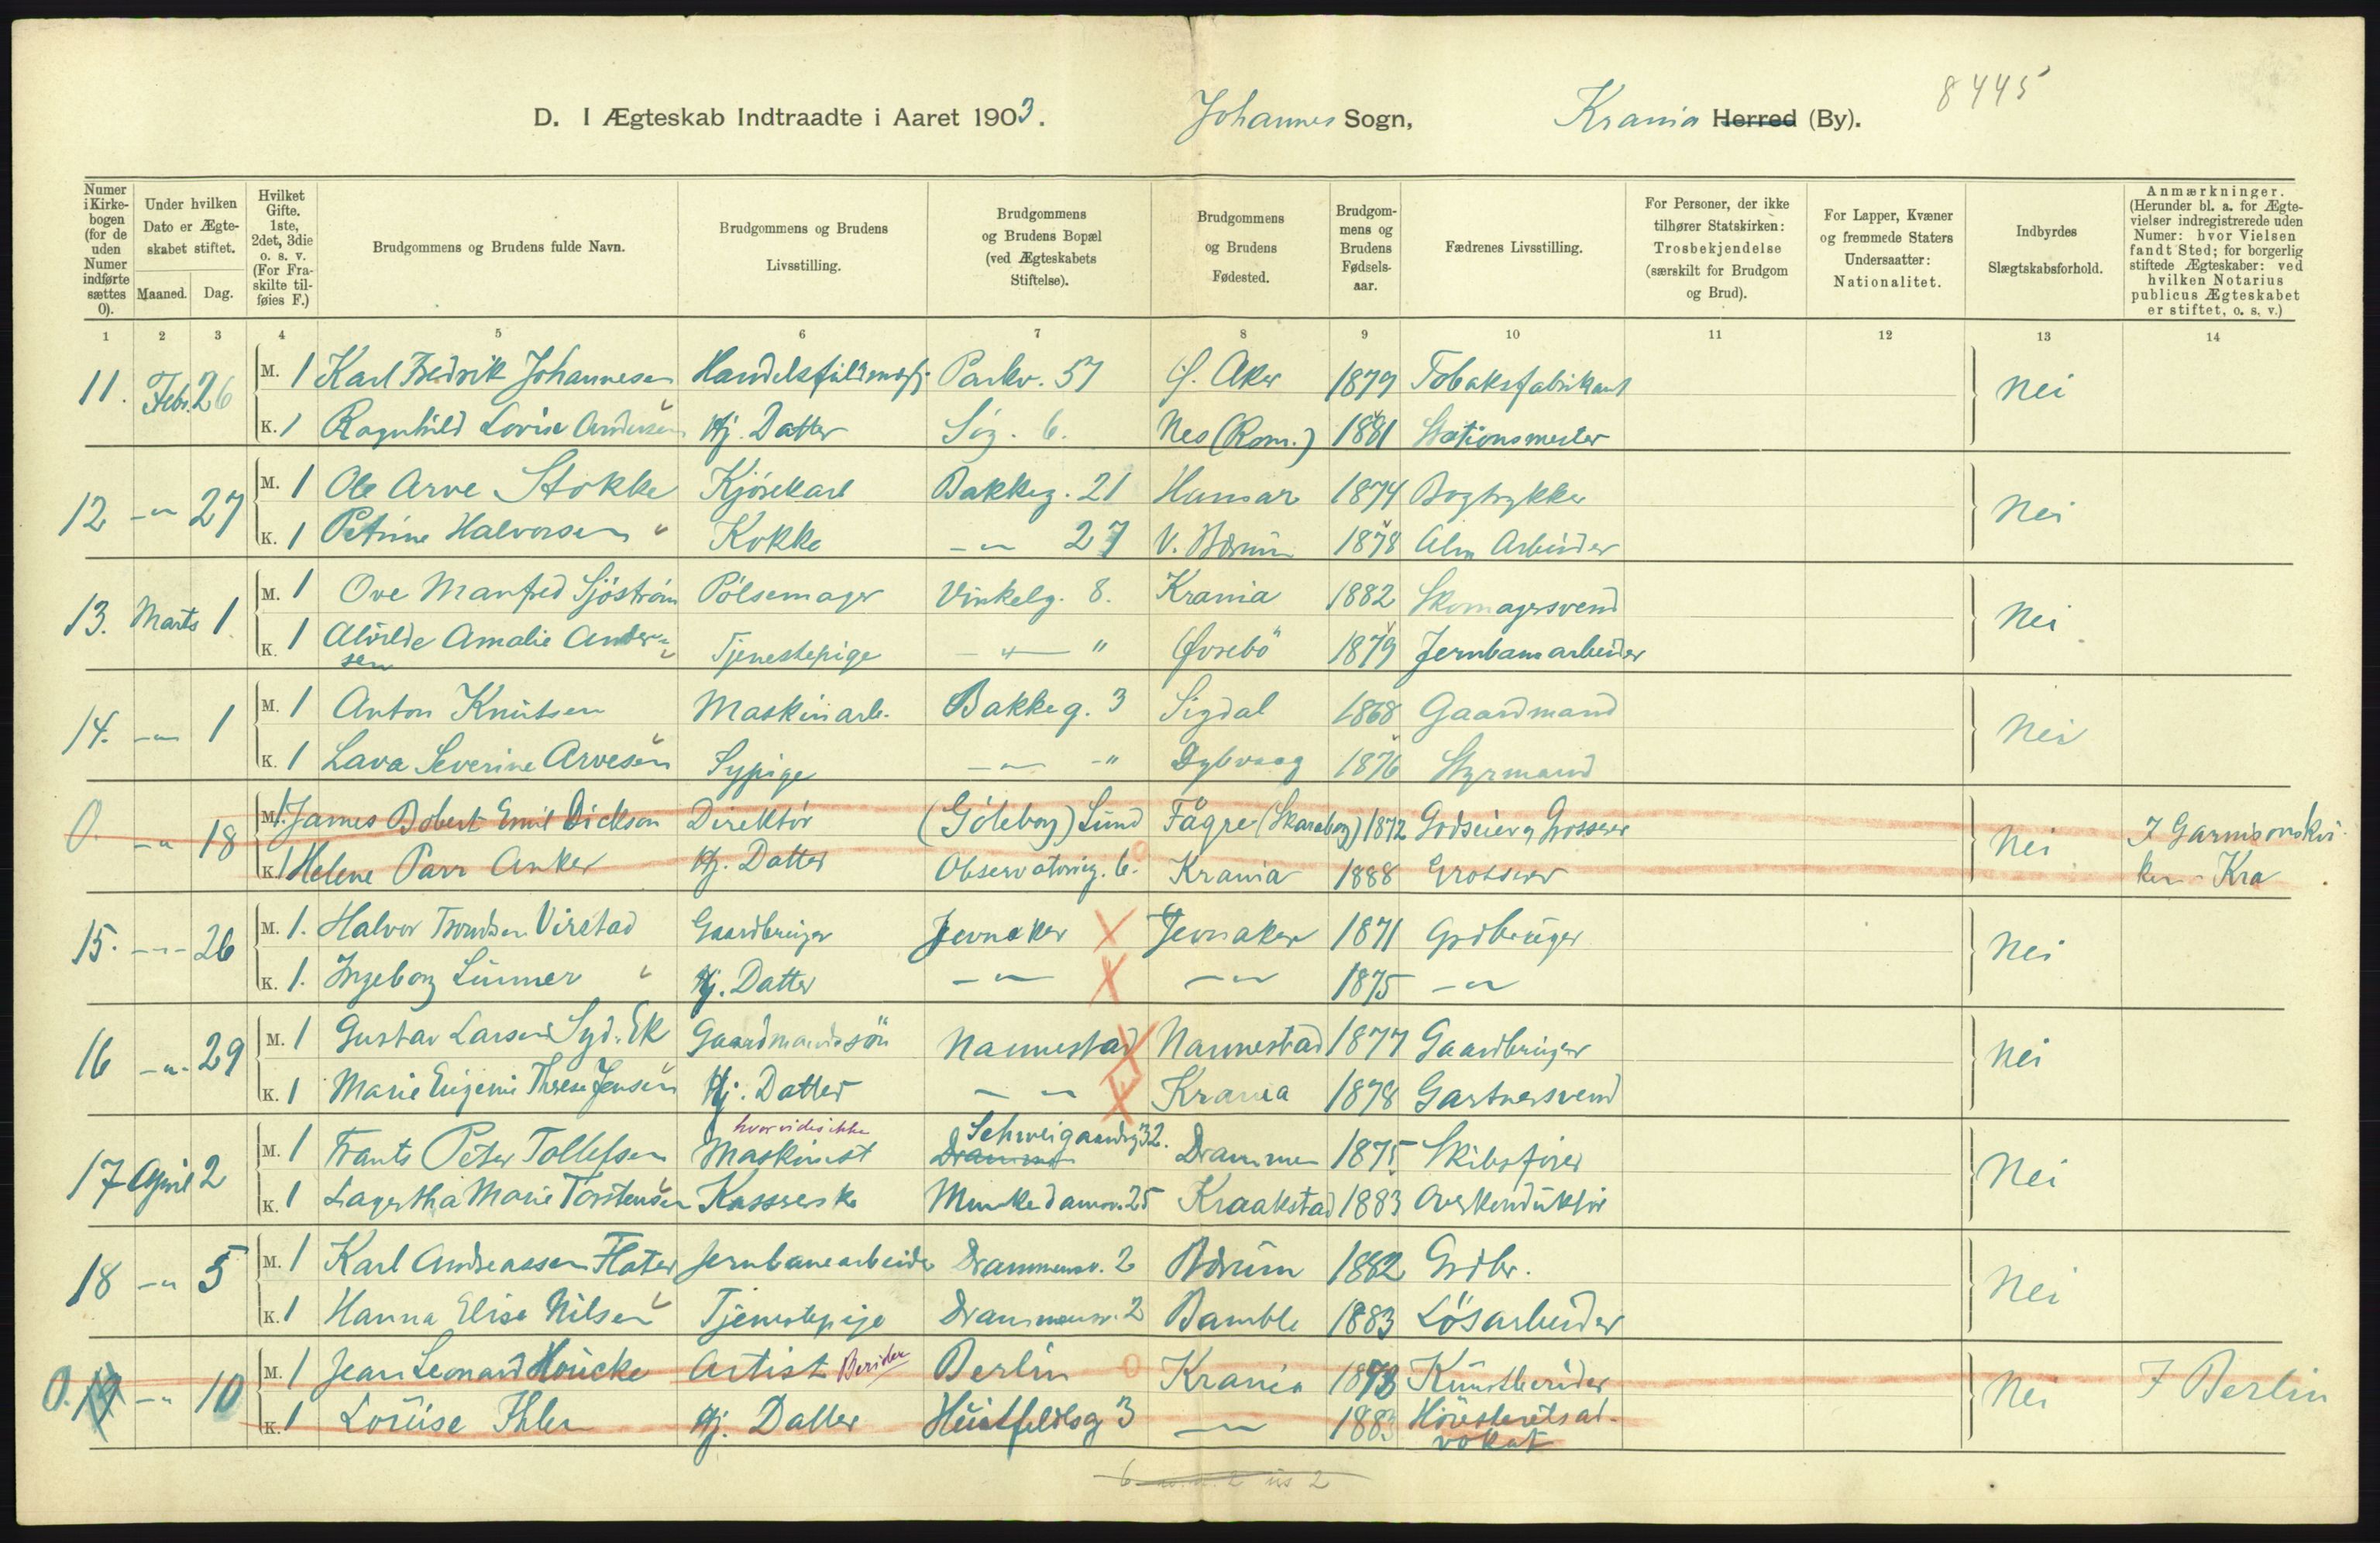 8445
D. I Ægteskab Indtraadte i Aaret 1903. Johannes Sogn, Krania Herred (By).
Numer i Kirkebogen (for de uden Numer indførte sættes 0).
Under hvilken Dato er Ægteskabet stiftet.
Maaned. Dag.
Hvilket Gifte. 1ste, 2det, 3die o. s. v. (For Fraskilte tilføies F.)
Brudgommens og Brudens fulde Navn.
Brudgommens og Brudens Livsstilling.
Brudgommens og Brudens Bopæl (ved Ægteskabets Stiftelse).
Brudgommens og Brudens Fødested.
Brudgommens og Brudens Fødselsaar.
Fædrenes Livsstilling.
For Personer, der ikke tilhører Statskirken: Trosbekjendelse (særskilt for Brudgom og Brud).
For Lapper, Kvæner og fremmede Staters Undersaatter: Nationalitet.
Indbyrdes Slægtskabsforhold.
Anmærkninger. (Herunder bl. a. for Ægtevielser indregistrerede uden Numer: hvor Vielsen fandt Sted; for borgerlig stiftede Ægteskaber: ved hvilken Notarius publicus Ægteskabet er stiftet, o. s. v.)
1 2 3 4 5 6 7 8 9 10 11 12 13 14
11. Febr. 26 M. 1 Karl Fredrik Johannesen Parkv. 57 Aker 1879 Tobaksfabrikant Nei
K. 1 Ragnhild Lovise Andersen Hj. Datter 6. Nes (Rom.) 1881 Stationsmester
12 -"- 27 M. 1 Ole Arve Stokke Kjørekarl Bakkeg. 21 Hamar 1874 Bogtrykker Nei
K. 1 Petrine Halvorsen Kokke -"- 27 V. Bærum 1878 Alm Arbeider
13. Marts 1. M. 1 Ove Manfred Sjöström Pölsemager Vinkelg. 8. Krania 1882 Skomagersvend Nei
K. 1 Alvilde Amalie Andersen Tjenestepige -"- " Øvrebö 1879 Jernbanearbeider
14. -"- 1 M. 1 Anton Knutsen Maskinarb. Bakkeg. 3 Sigdal 1868 Gaardmand Nei
K. 1 Lava Severine Arvesen Sypige -"- -" Dybvaag 1876 Styrmand
0. -"- 18 M. 1. James Robert Emil Dickson Direktör (Göteborg) Lund Fägre (Skaraborg) 1872 Godseier og Grosserer Nei I Garnisonskir-
K. 1 Helene Parr Anker Hj. Datter Observatorieg. 6. Krania 1888 Grosserer ken - Kra.
15. -"- 26 M. 1. Halvor Trondsen Virstad Gaardbruger Jevnaker X Jevnaker 1871 Grdbruger Nei
K. 1. Ingeborg Linner Hj. Datter -"- X -"- 1875 -"-
16 -"- 29 M. 1 Gustav Larsen Syd. Ek Gaardmandssön Nannestad X Nannestad 1877 Gaardbruger Nei
K. 1 Marie Eugenie Therese Jensen Hj. Datter -"- X Krania 1878 Gartnersvend
hvor vides ikke Schweigaardsg 32.
17 April 2 M. 1 Frants Peter Tollefsen Maskinist Drammen Drammen 1875 Skibsfører Nei
K. 1 Lagertha Marie Torstensen Kassererske Munkedamsv. 25 Kraakstad 1883 Overkonduktör
18 -"- 5 M. 1 Karl Andreassen Flater Jernbanearbeider Drammensv. 2 Bærum 1882 Grdbr. Nei
K. 1 Hanna Elise Nilsen Tjenestepige Drammensv. 2 Bamble 1883 Lösarbeider
0. 19 -"- 10 M. 1 Jean Leonard Houcke Artist Berider Berlin Krania 1873 Kunstberider Nei I Berlin
K. 1 Louise Ihlen Hj. Datter Huitfeldtsg 3 -"- 1883 Høiesteretsad-
vokat